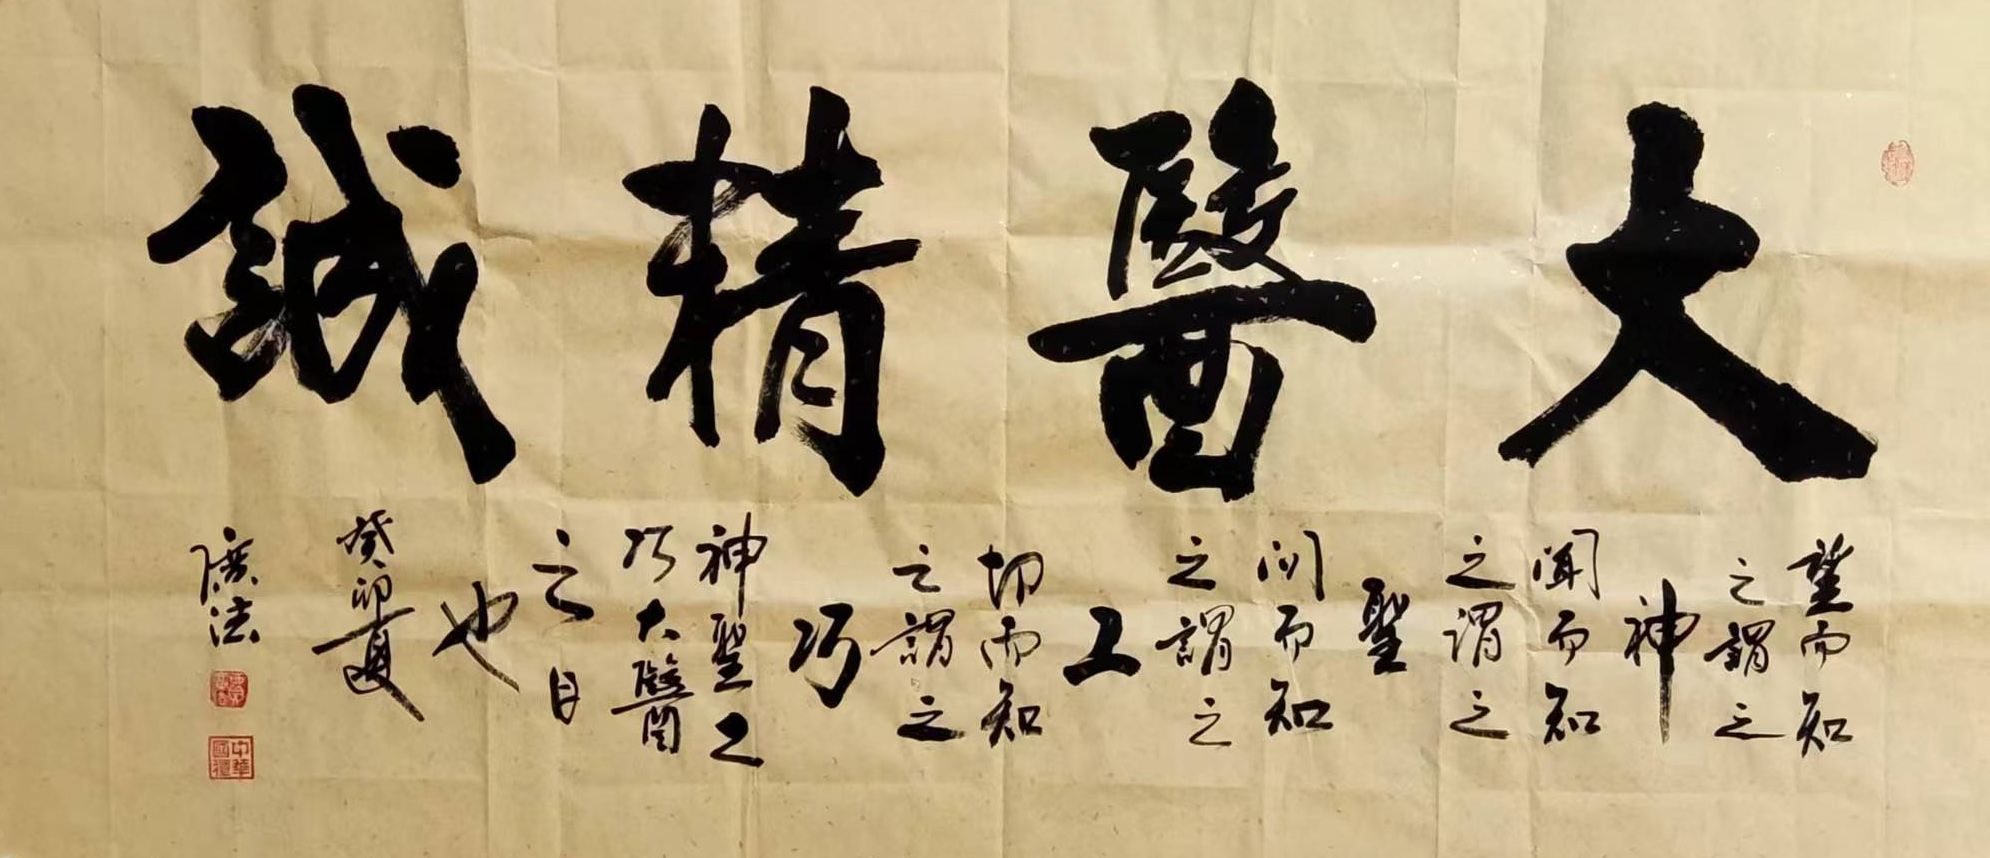 大醫精誠
望而知
之謂之
神
聞而知
之謂之
聖
问而知
之謂之
工
切而知
之謂之
巧
神聖工
巧大醫
之目
也
癸卯夏
廣法
中華